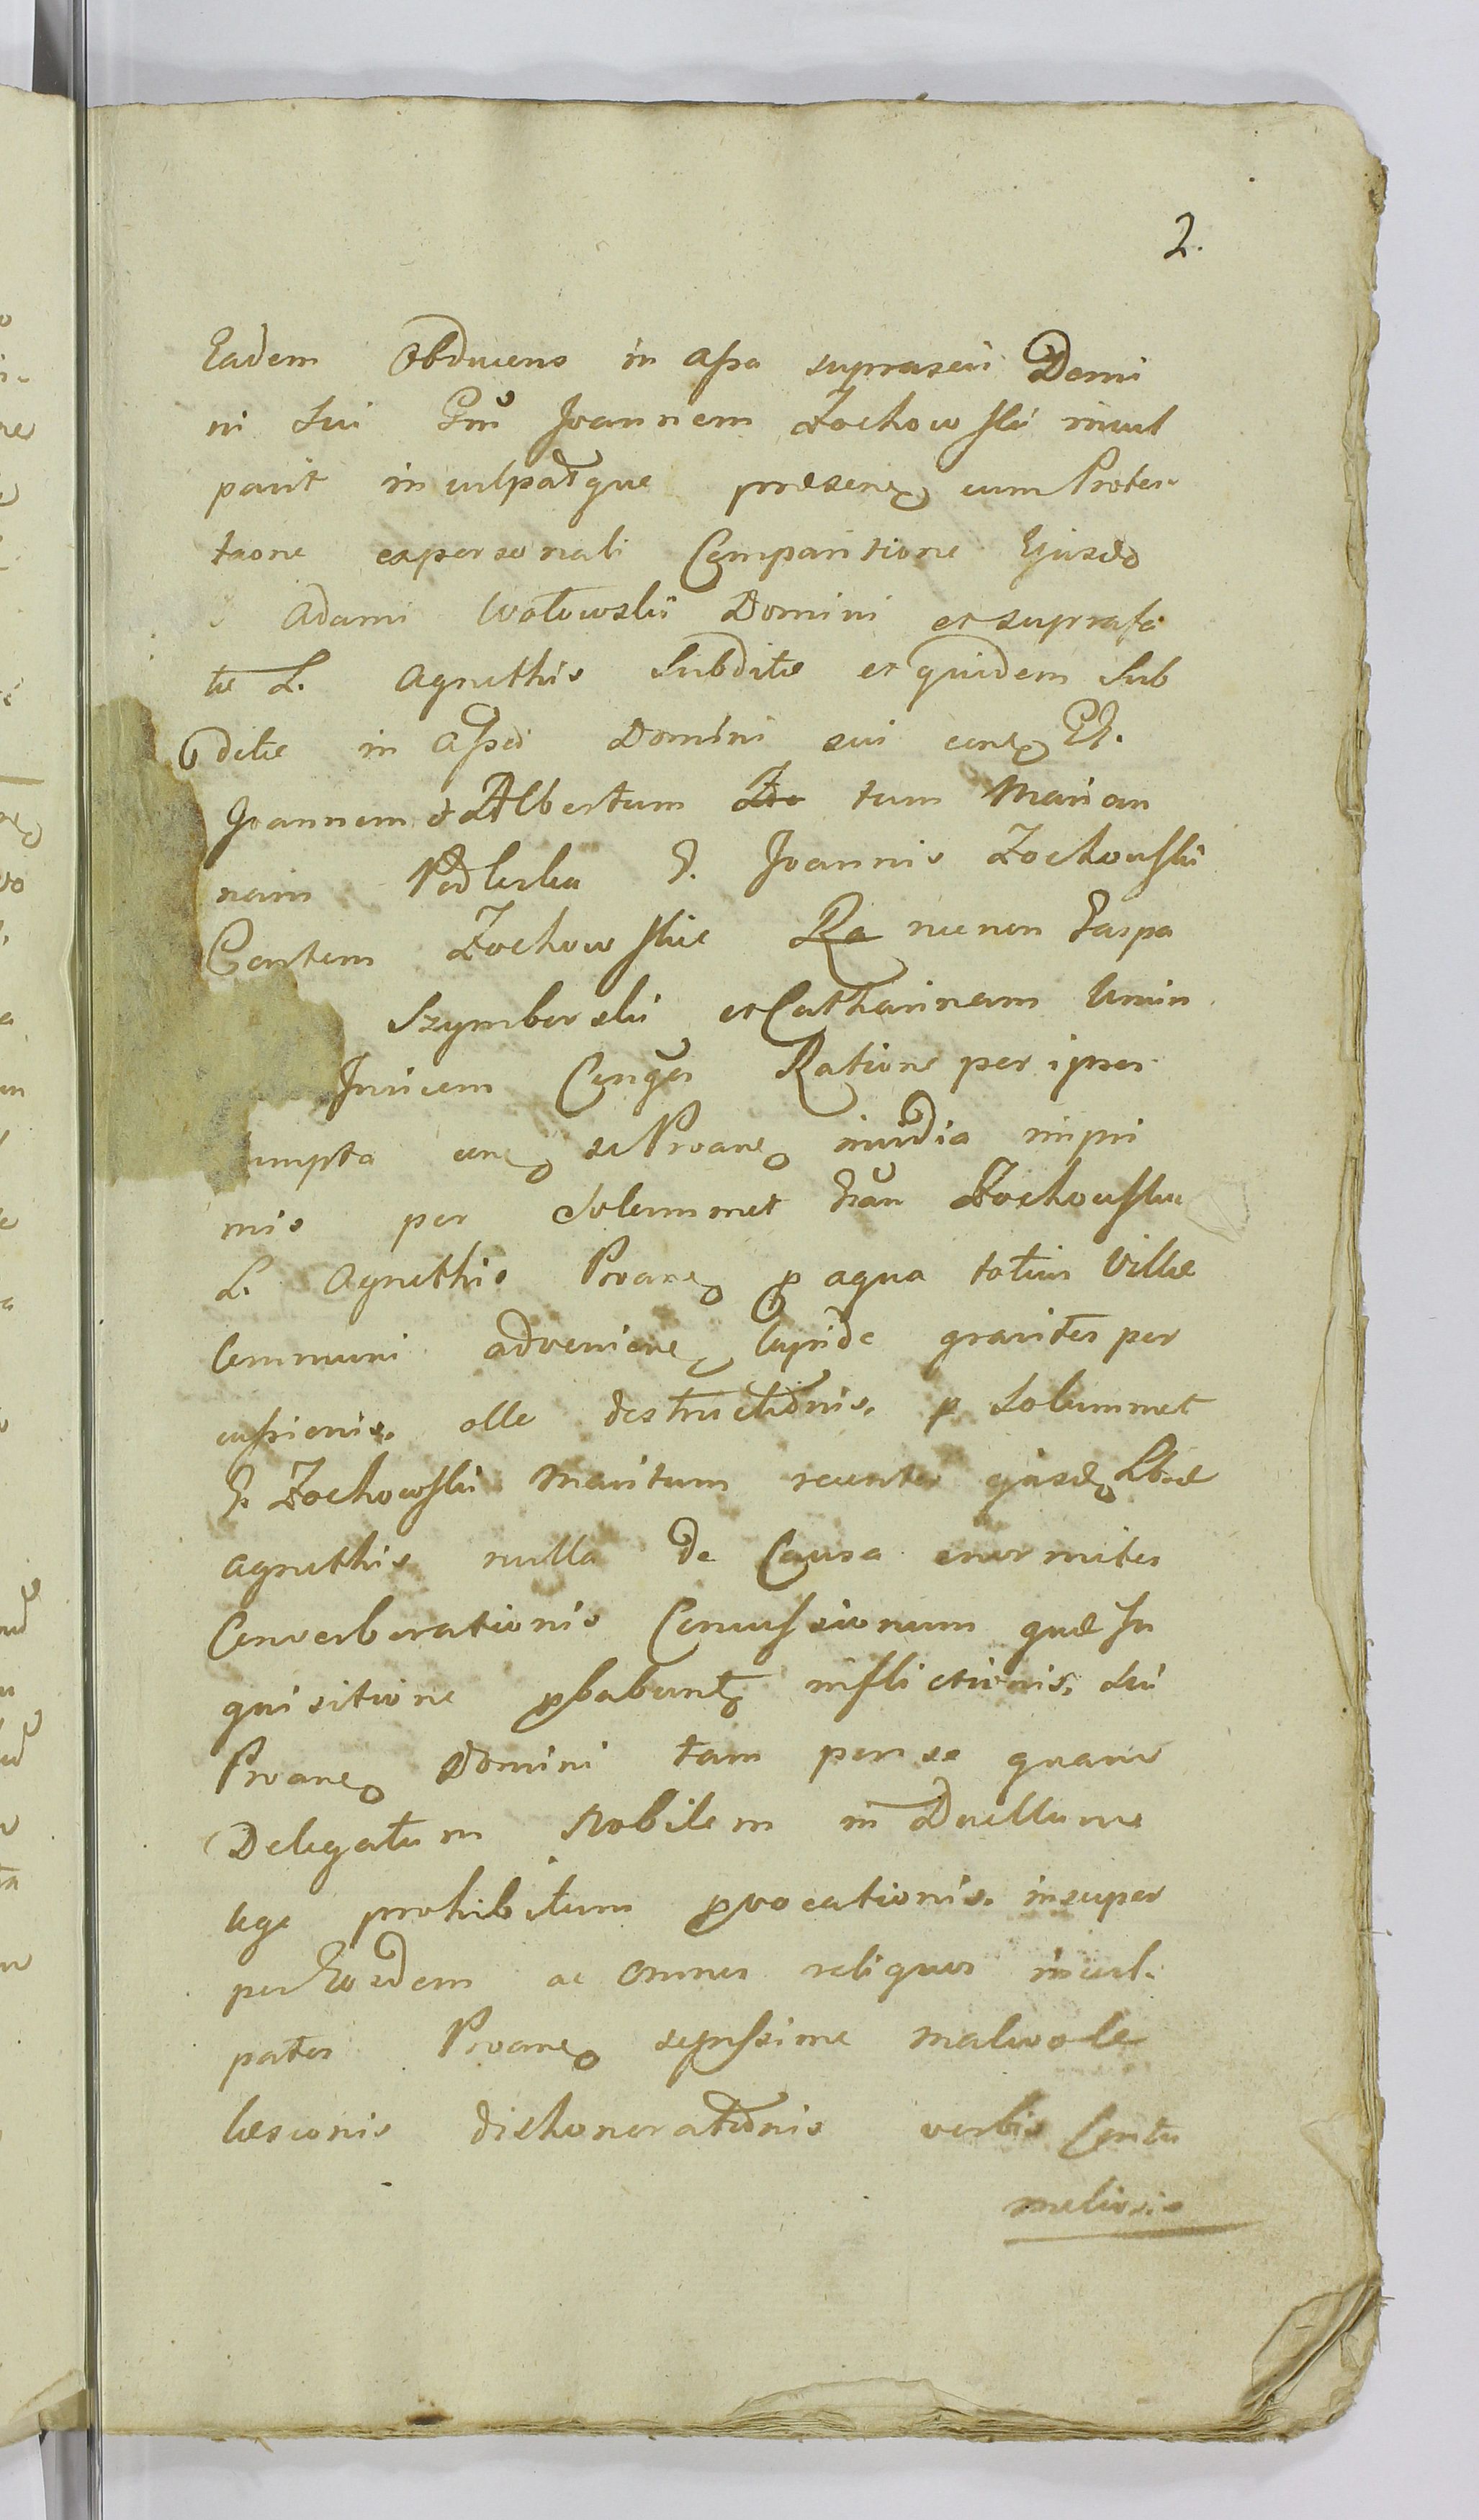 2.
Eadem Obducens in assa suprascri Domi
ni Sui Gnu Joannem Zochowski incul
pavit inculpatque praesens cum Protes
taone expersonali Comparitione Ejusdo
Adami Wołowski Domini et suprafa
tae L. Agnethis Subditae et quidem Sub
ditae in assa Domini sui
Joannem & Albertum tum Marian
nam Podleska G. Joannis Zochowski
Zochowskie necnon Gaspa
Szymborski et Catharinam
Invicem Conges Ratione per ipsos
umpta se Proane invidia impri
mis per Solummet Zochowskie
L. Agnethis Proane p aqua totius Villae
Communi adveniene lapide graviter per
cussionis. olle destructionis. p Solummet
G. Zochowski Maritum recenter ejusde
Agnethis nulla de Causa enormiter
Converberationis Concussionum quae In
quisitione pbabunt inflictionis, Sui
Proane Domini tam per se quam
Delegatum Nobilem in Duellum
lege prohibitum pvocationis. insuper
per Eosdem ac omnes reliquos incul.
patos Proane sepissime malevole
laesionis dishonorationis verbis Contu
meliosis